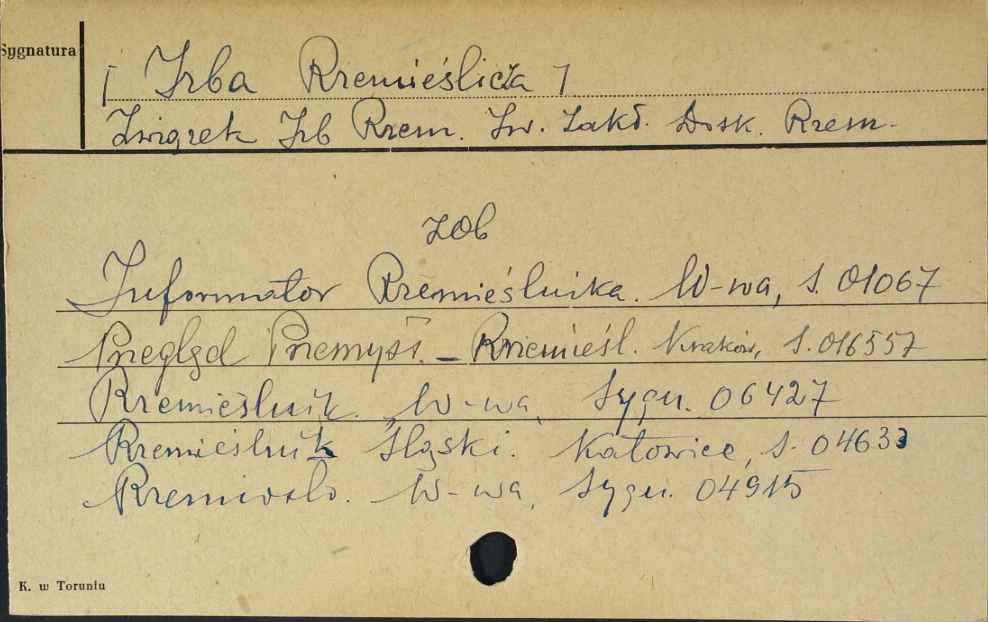 Sygnatura
[ Izba Rzemieślicza ]
Związek Izb Rzem. Zw. Zakł. Dosk. Rzem.
zob
Informator Rzemieślnika. W-wa, S. 01067
Przegląd Przemysł. - Rzemieśl. Kraków, S. 016557
Rzemieślnik. W-wa, Sygn. 06427
Rzemieślnik Śląski. Katowice, S. 04633
Rzemiosło. W-wa, Sygn. 04915
K. w Toruniu